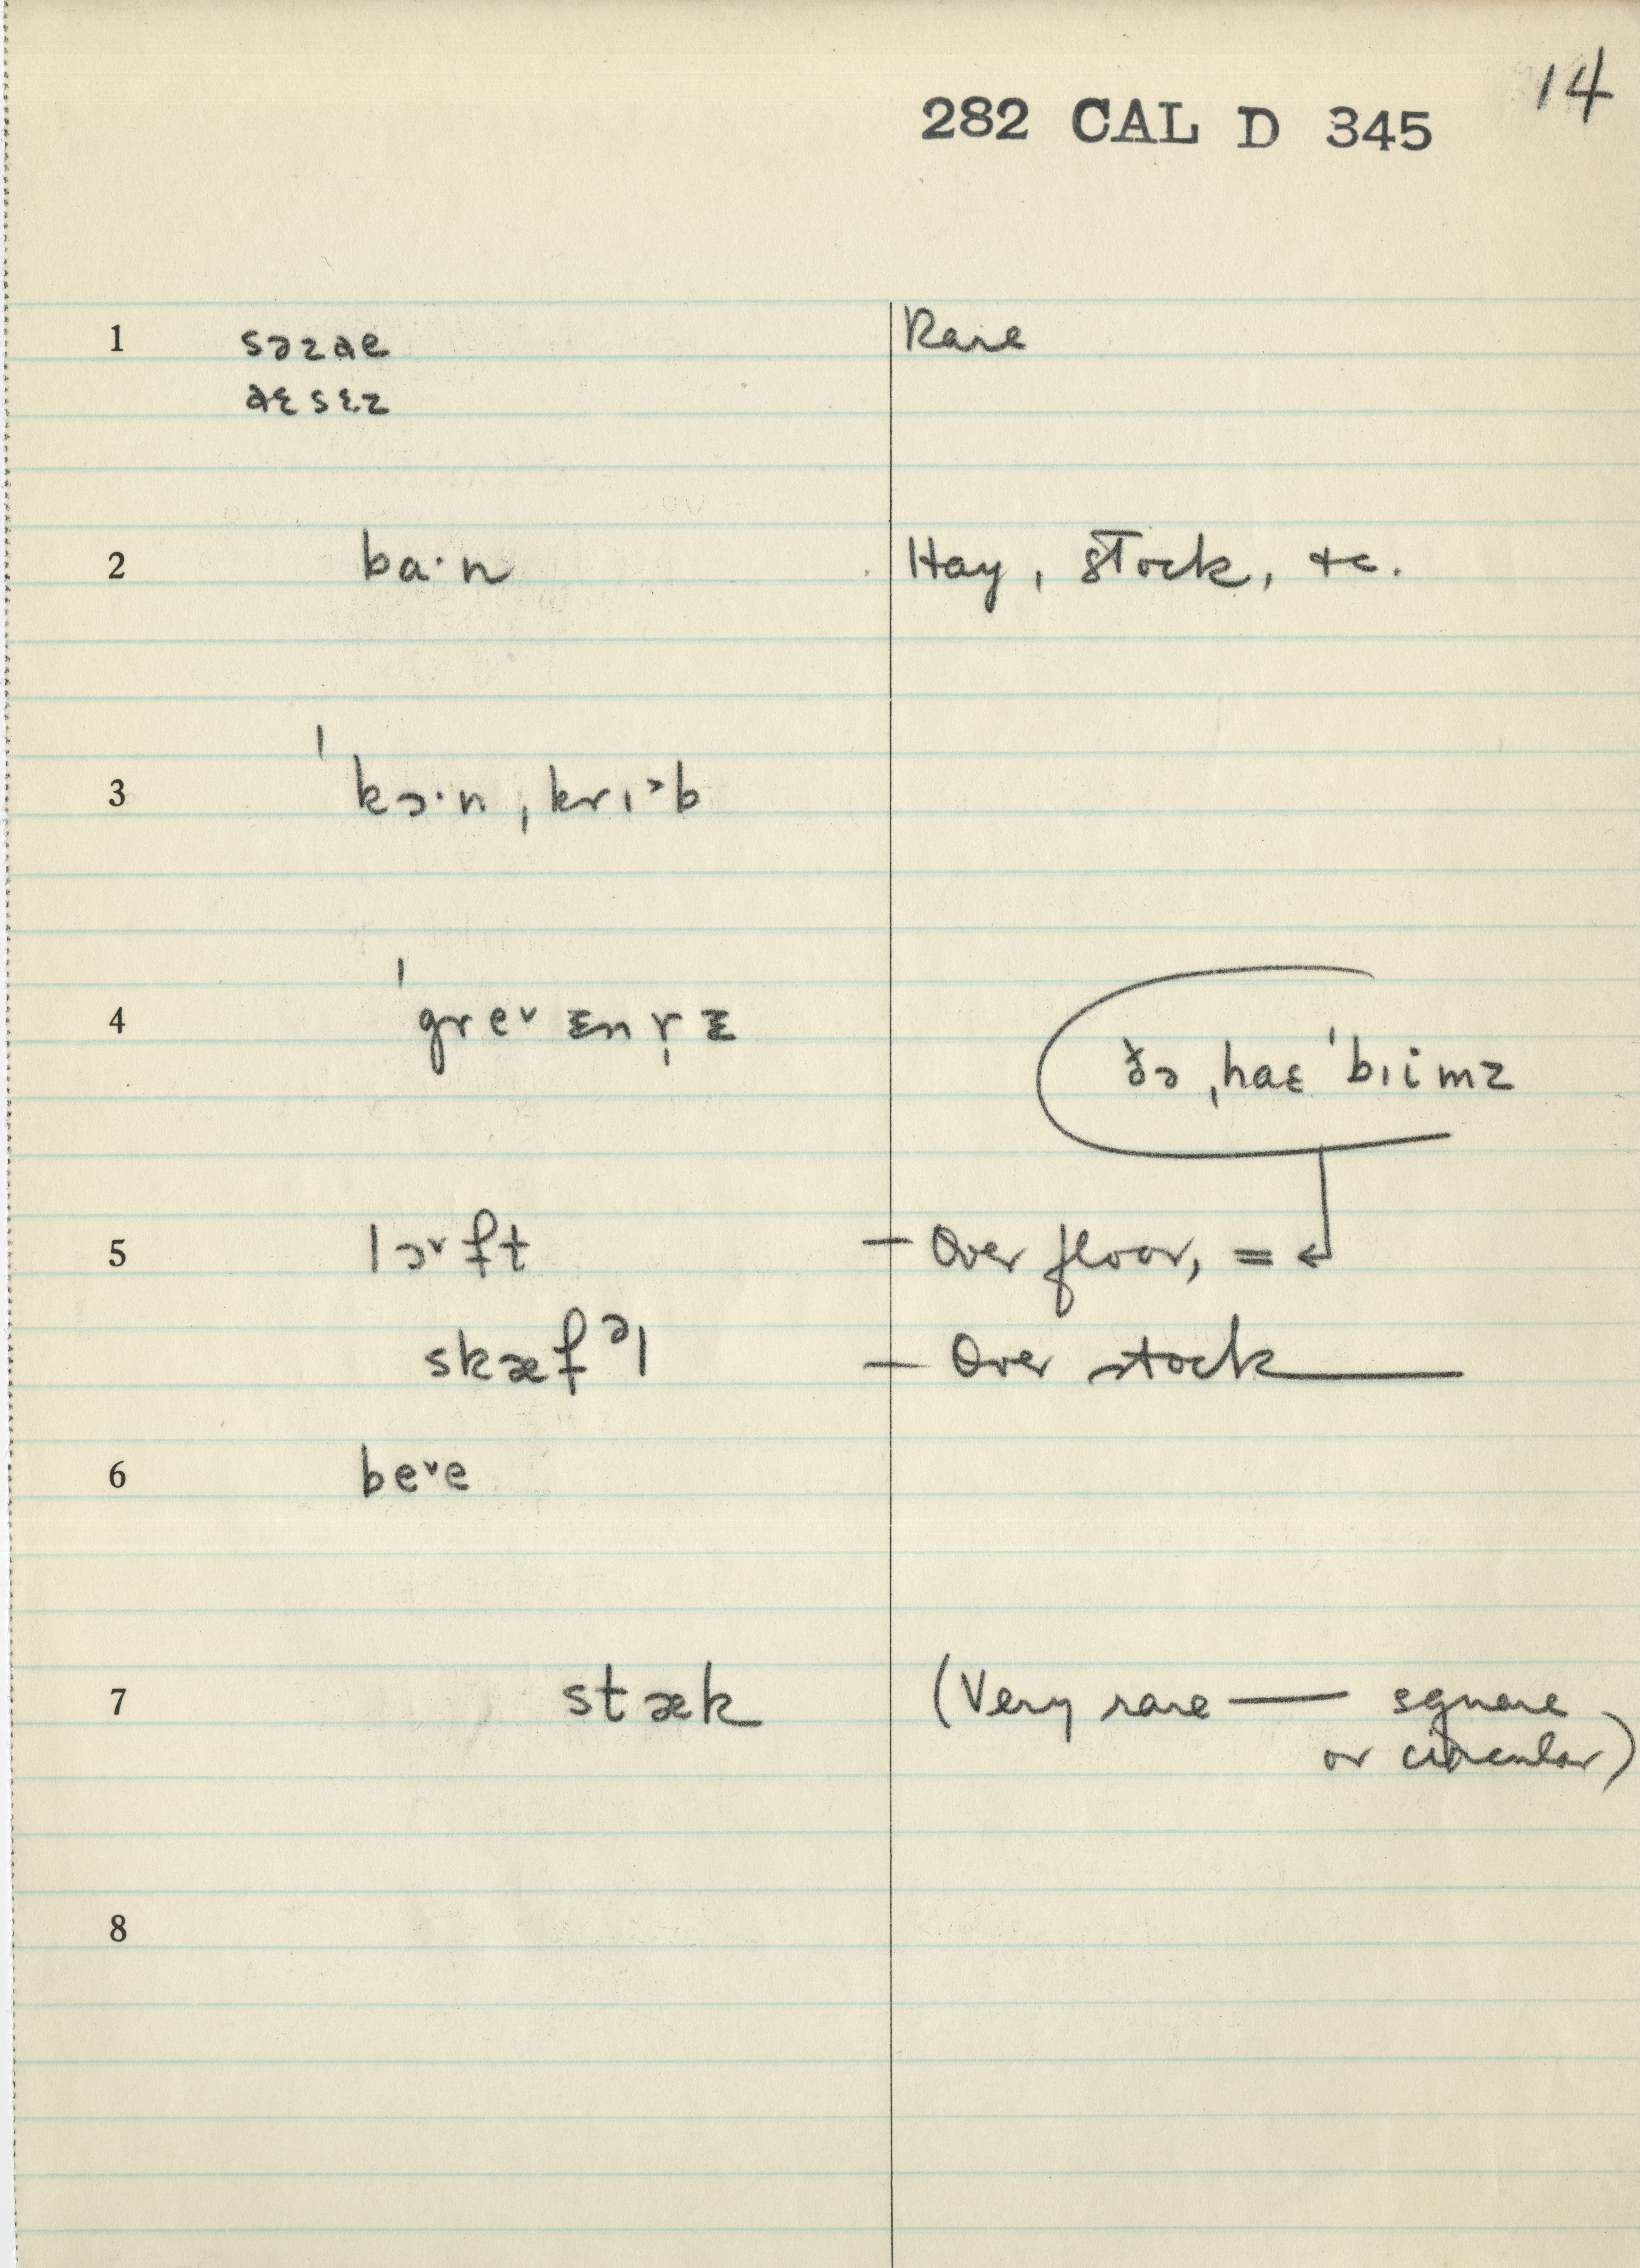 14
282 CAL D 345
1 sɔzɑe Rare
ɑɛsɛz
2 ba·n Hay, stock, &c.
3 ˈkɔ·n ˌkrɪ˃b
4 ˈgre˅ɪnr̩ɪ
ðə ˌhaɛ ˈbɪimz
5 lɔ˅ft — Over floor, = ↲
skæfᵊl — Over stock ——
6 be˅e
7 stæk (Very rare —— square
or circular)
8